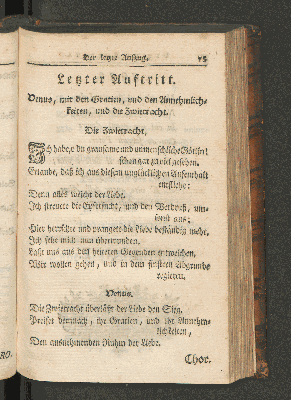 Der letzte Aufzug. 75
Letzter Auftritt.
Venus, mit den Gratien, und den Annehmlich-
keiten, und die Zwietracht.
Die Zwietracht.
Ich habe, du grausame und unmenschliche Göttin!
schon gar zu viel gesehen.
Erlaube, daß ich aus diesem unglücklichen Aufenthalt
entfliehe:
Wenn alles weicht der Liebe.
Ich streuete die Eyfersucht, und den Verdruß, um-
sonst aus;
Hier herrschte und prangete die Liebe beständig mehr,
Ich sehe mich nun überwunden.
Laßt uns aus den heitern Gegenden entweichen,
Wir wollen gehen, und in dem finstern Abgrunde
regieren.
Venus.
Die Zwietracht überläßt der Liebe den Sieg.
Preiset demnach, ihr Gratien, und ihr Annehm-
lichkeiten,
Den ausnehmenden Ruhm der Liebe.
Chor.
RO.